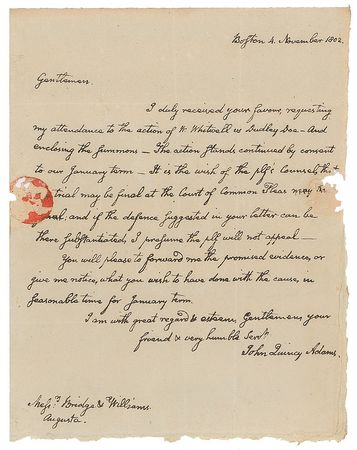 Boston 4. November 1802.
Gentlemen.
I duly received your favour, requesting
my attendance to the action of W. Whitwell vs Dudley Doe — And
enclosing the Summons — The action stands continued by consent
to our January term — It is the wish of the plf's Counsel, that
trial may be final at the Court of Common Pleas
and if the defence suggested in your letter can be
there substantiated, I presume the plf will not appeal —
You will please to forward me the promised evidence, or
give me notice, what you wish to have done with the cause, in
seasonable time for January term.
I am with great regard & esteem, Gentlemen, your
friend & very humble Servt.
John Quincy Adams.
Messrs. Bridge & Williams.
Augusta.